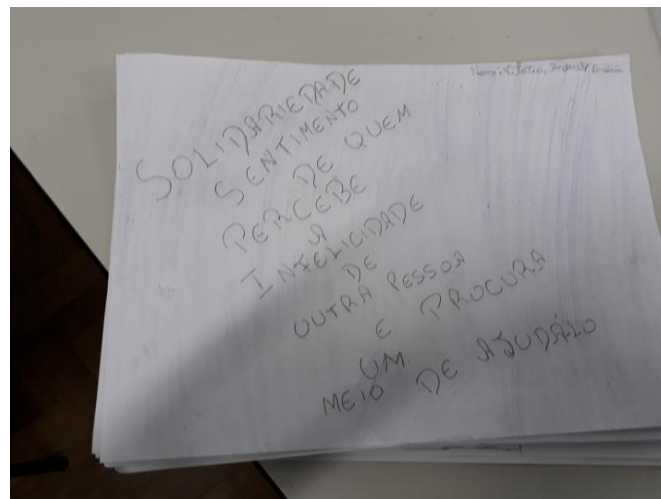 Nome:
SOLIDARIEDADE
SENTIMENTO
DE QUEM
PERCEBE
A
INFELICIDADE
DE
OUTRA PESSOA
E PROCURA
UM
MEIO DE AJUDÁLO